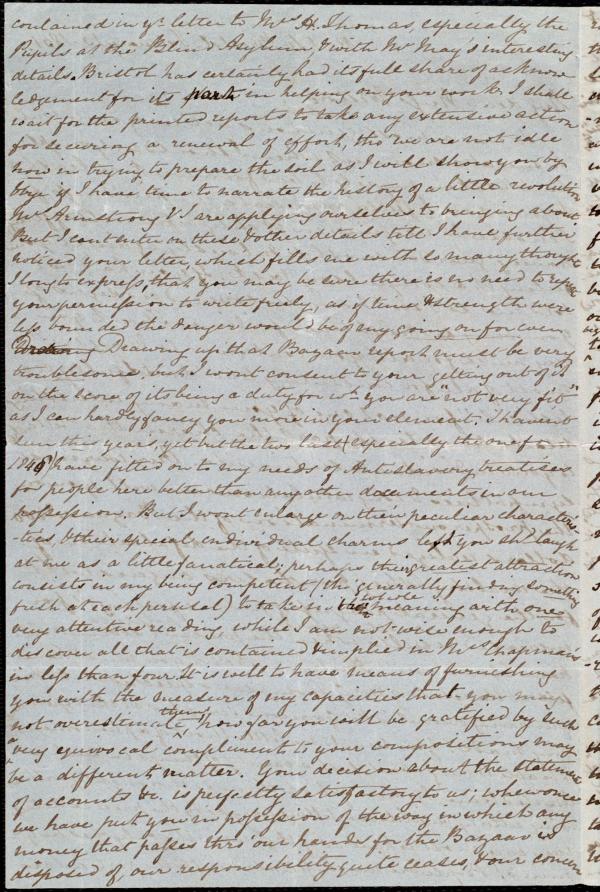 contained in yr letter to Mrs H. Thomas, especially the
Pupils at the Blind Asylum, & with Mr May's interesting
details. Bristol has certainly had its full share of acknow
ledgement for its part in helping on your work. I shall
wait for the printed reports to take any extensive action
for securing a renewal of effort, tho' we are not idle
now in trying to prepare the soil as I will show you by
& bye if I have time to narrate the history of a little revolution
Mrs Armstrong & I are applying ourselves to bringing about
But I cant enter on these & other details till I have further
noticed your letter, which fills me with so many thoughts
I long to express, that you may be sure there is no need to
your permission to write freely, as if time & strength were
less bounded the danger would be of my going on for ever
Drawing up that Bazaar report must be very
troublesome, but I wont consent to your getting out of it
on the score of its being a duty for wh you are "not very fit,"
as I can hardly fancy you more in your element. I havent
seen this years, yet but the two last (especially the one f
1846) have fitted on to my needs of Antislavery treatises
for people here better than any other documents in our
possession. But I wont enlarge on their peculiar characteris-
-tics & their special individual charms lest you shd laugh
at me as a little fanatical; perhaps their greatest attraction
consists in my being competent (tho' generally finding something
fresh at each perusal) to take in the whole meaning with one
very attentive reading, while I am not wise enough to
discover all that is contained & implied in Mrs Chapman's
in less than four. It is well to have means of furnishing
you with the measure of my capacities that you may
not overestimate them, how far you will be gratified by such
"very equivocal" compliment to your compositions may
be a different matter. Your decision about the statement
of accounts &c. is perfectly satisfactory to us; when once
we have put you in possession of the way in which any
money that passes thro our hands for the Bazaar is
disposed of our responsibility quite ceases, & our concern